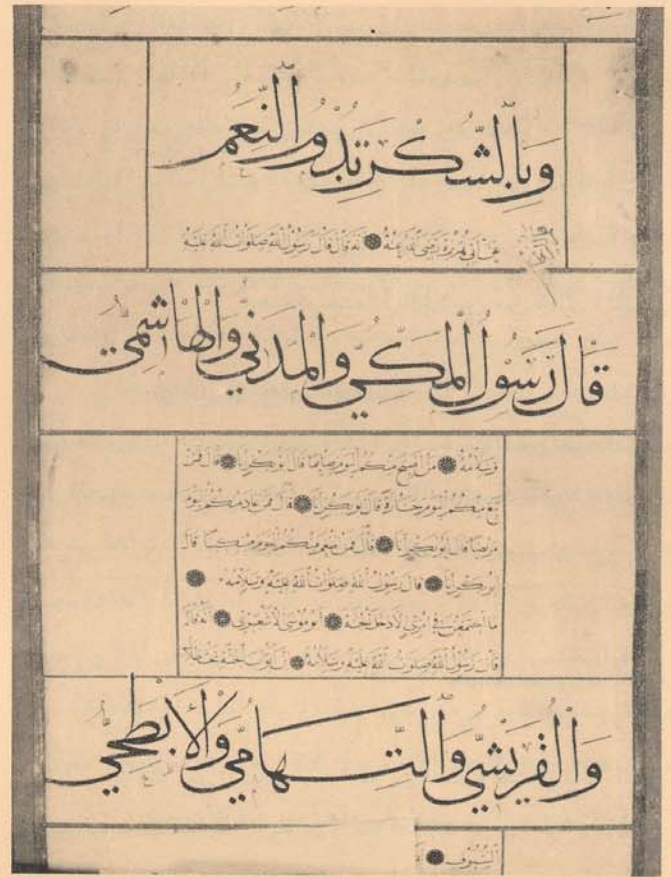 وَبِالشُّكْرِ تَدُومُ النِّعَمُ
عَنْ أَبِي هُرَيْرَةَ رَضِيَ اللهُ عَنْهُ أَنَّهُ قَالَ قَالَ رَسُولُ اللهِ صَلَوَاتُ اللهِ عَلَيْهِ
قَالَ رَسُولُ الْمَكِّيِّ وَالْمَدَنِيِّ وَالْهَاشِمِيِّ
وَسَلَامُهُ مَنْ أَصْبَحَ مِنْكُمُ الْيَوْمَ صَائِمًا قَالَ أَبُو بَكْرٍ أَنَا قَالَ فَمَنْ
تَبِعَ مِنْكُمُ الْيَوْمَ جَنَازَةً قَالَ أَبُو بَكْرٍ أَنَا قَالَ فَمَنْ عَادَ مِنْكُمُ الْيَوْمَ
مَرِيضًا قَالَ أَبُو بَكْرٍ أَنَا قَالَ فَمَنْ أَطْعَمَ مِنْكُمُ الْيَوْمَ مِسْكِينًا قَالَ
أَبُو بَكْرٍ أَنَا قَالَ رَسُولُ اللهِ صَلَوَاتُ اللهِ عَلَيْهِ وَسَلَامُهُ
مَا اجْتَمَعْنَ فِي امْرِئٍ إِلَّا دَخَلَ الْجَنَّةَ أَبُو مُوسَى الْأَشْعَرِيُّ أَنَّهُ قَالَ
قَالَ رَسُولُ اللهِ صَلَوَاتُ اللهِ عَلَيْهِ وَسَلَامُهُ إِنَّ أَبْوَابَ الْجَنَّةِ تَحْتَ ظِلَالِ
وَالْقُرَيْشِيِّ وَالتِّهَامِيِّ وَالْأَبْطَحِيِّ
السُّيُوفِ